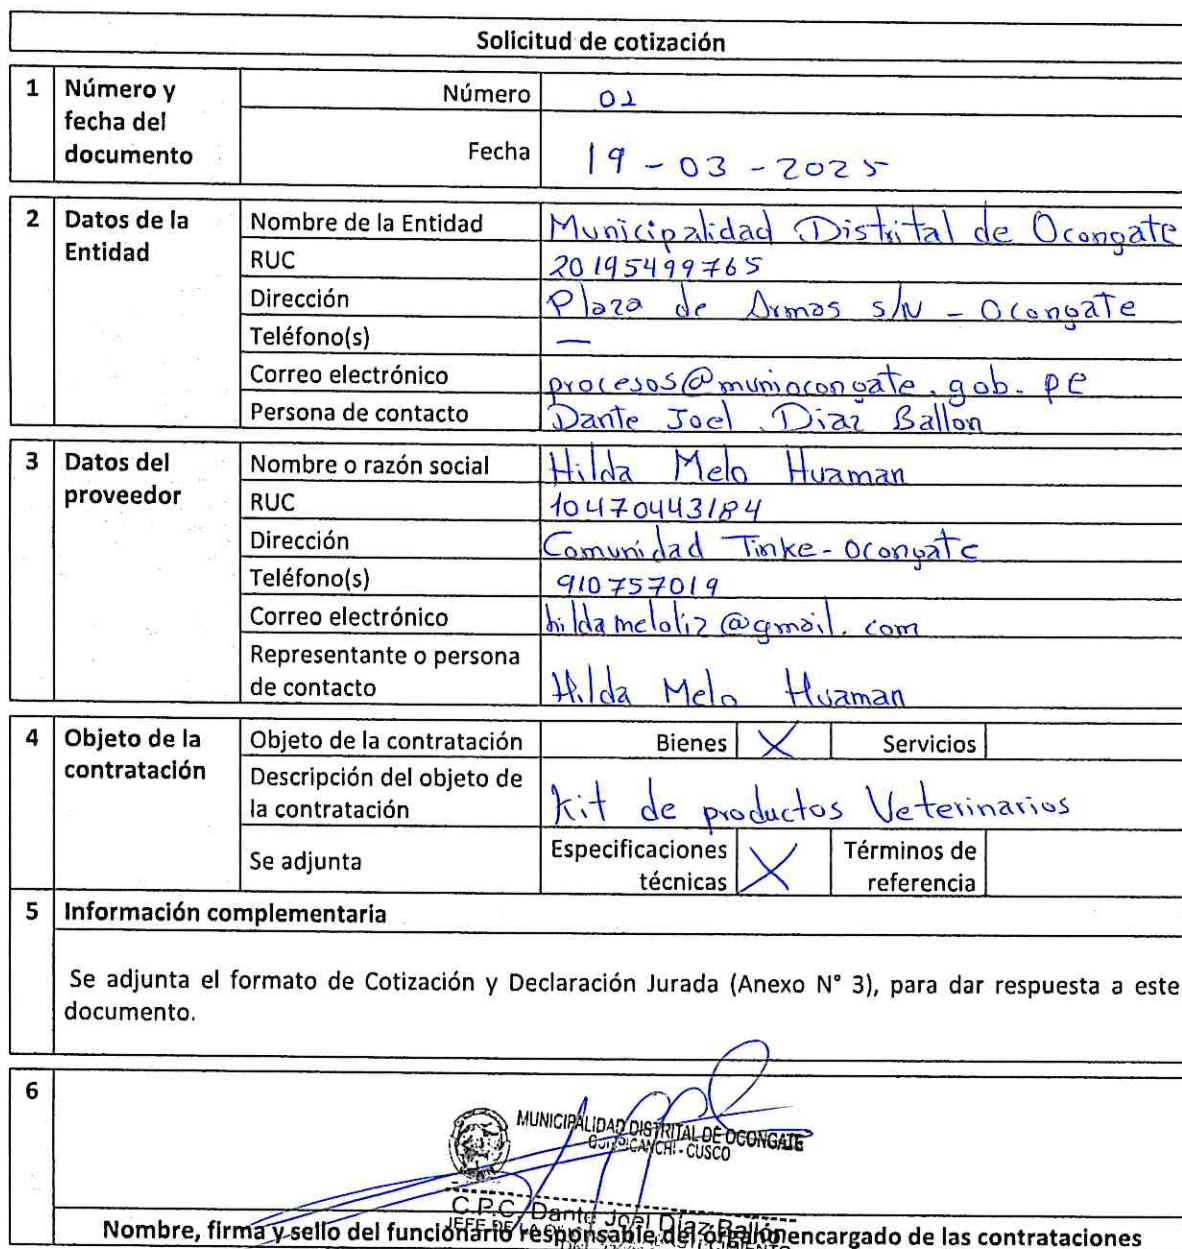 Solicitud de cotización
1 Número y fecha del documento
Número 02
Fecha 19-03-2025
2 Datos de la Entidad
Nombre de la Entidad Municipalidad Distrital de Ocongate
RUC 20195499765
Dirección Plaza de Armas s/N - Ocongate
Teléfono(s) —
Correo electrónico procesos@muniocongate.gob.pe
Persona de contacto Dante Joel Diaz Ballon
3 Datos del proveedor
Nombre o razón social Hilda Melo Huaman
RUC 10470443184
Dirección Comunidad Tinke-Ocongate
Teléfono(s) 910757019
Correo electrónico hildameloliz@gmail.com
Representante o persona de contacto Hilda Melo Huaman
4 Objeto de la contratación
Objeto de la contratación Bienes X Servicios
Descripción del objeto de la contratación Kit de productos Veterinarios
Se adjunta Especificaciones técnicas X Términos de referencia
5 Información complementaria
Se adjunta el formato de Cotización y Declaración Jurada (Anexo N° 3), para dar respuesta a este
documento.
6
MUNICIPALIDAD DISTRITAL DE OCONGATE
QUISPICANCHI - CUSCO
C.P.C. Dante Joel Díaz Ballón
JEFE DE LA
Nombre, firma y sello del funcionario responsable del órgano encargado de las contrataciones